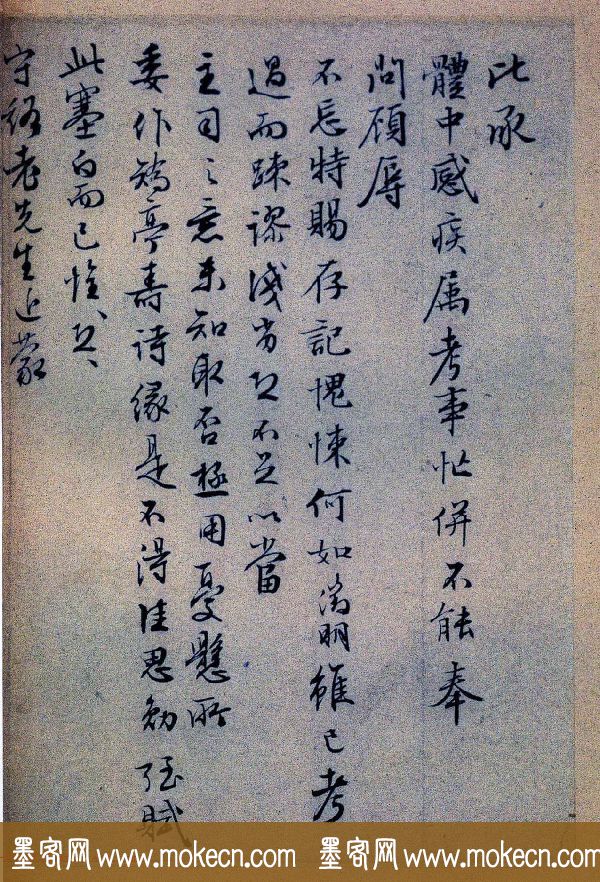 比承
體中感疾属考事忙併不能奉
問頋辱
不忘特賜存記愧悚何如明雖已考
過而踈謬淺劣恐不足以當
主司之意未知取否極用憂懸所
委作亭壽詩緣是不得佳思勉强賦
此塞白而已惶、恐、
守谿老先生近蒙
墨客网 www.mokecn.com 墨客网 www.mokecn.com